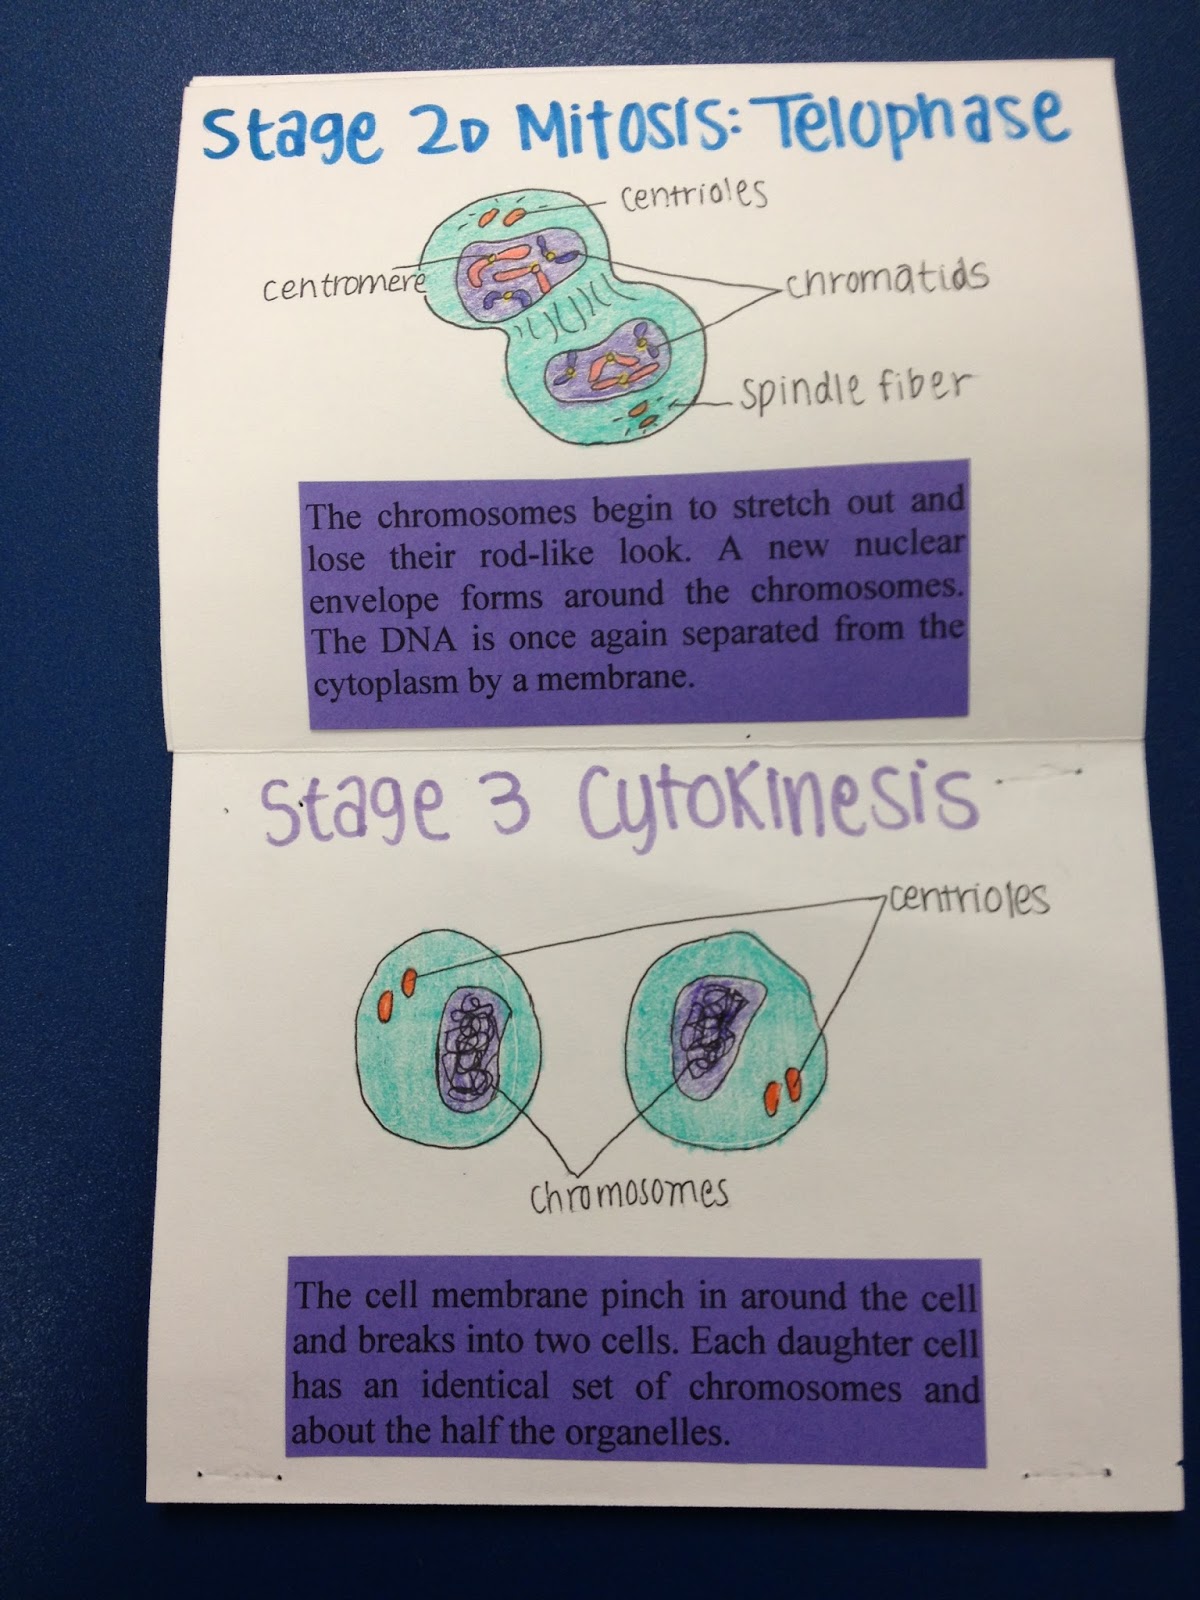 Stage 2D Mitosis: Telophase
centrioles
centromere
chromatids
spindle fiber
The chromosomes begin to stretch out and
lose their rod-like look. A new nuclear
envelope forms around the chromosomes.
The DNA is once again separated from the
cytoplasm by a membrane.
Stage 3 Cytokinesis
centrioles
chromosomes
The cell membrane pinch in around the cell
and breaks into two cells. Each daughter cell
has an identical set of chromosomes and
about the half the organelles.